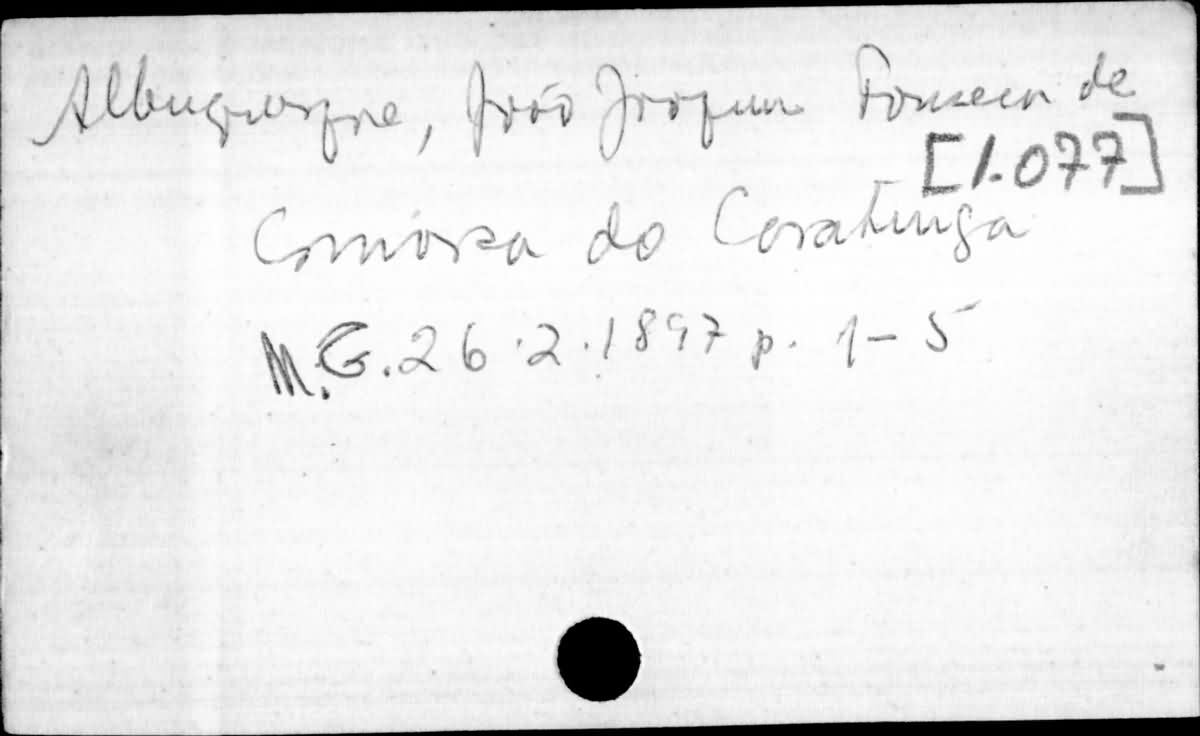 Albuquerque, João Joaquim Fonseca de
[1.077]
Comarca do Caratinga
M.G. 26.2.1897 p. 1-5